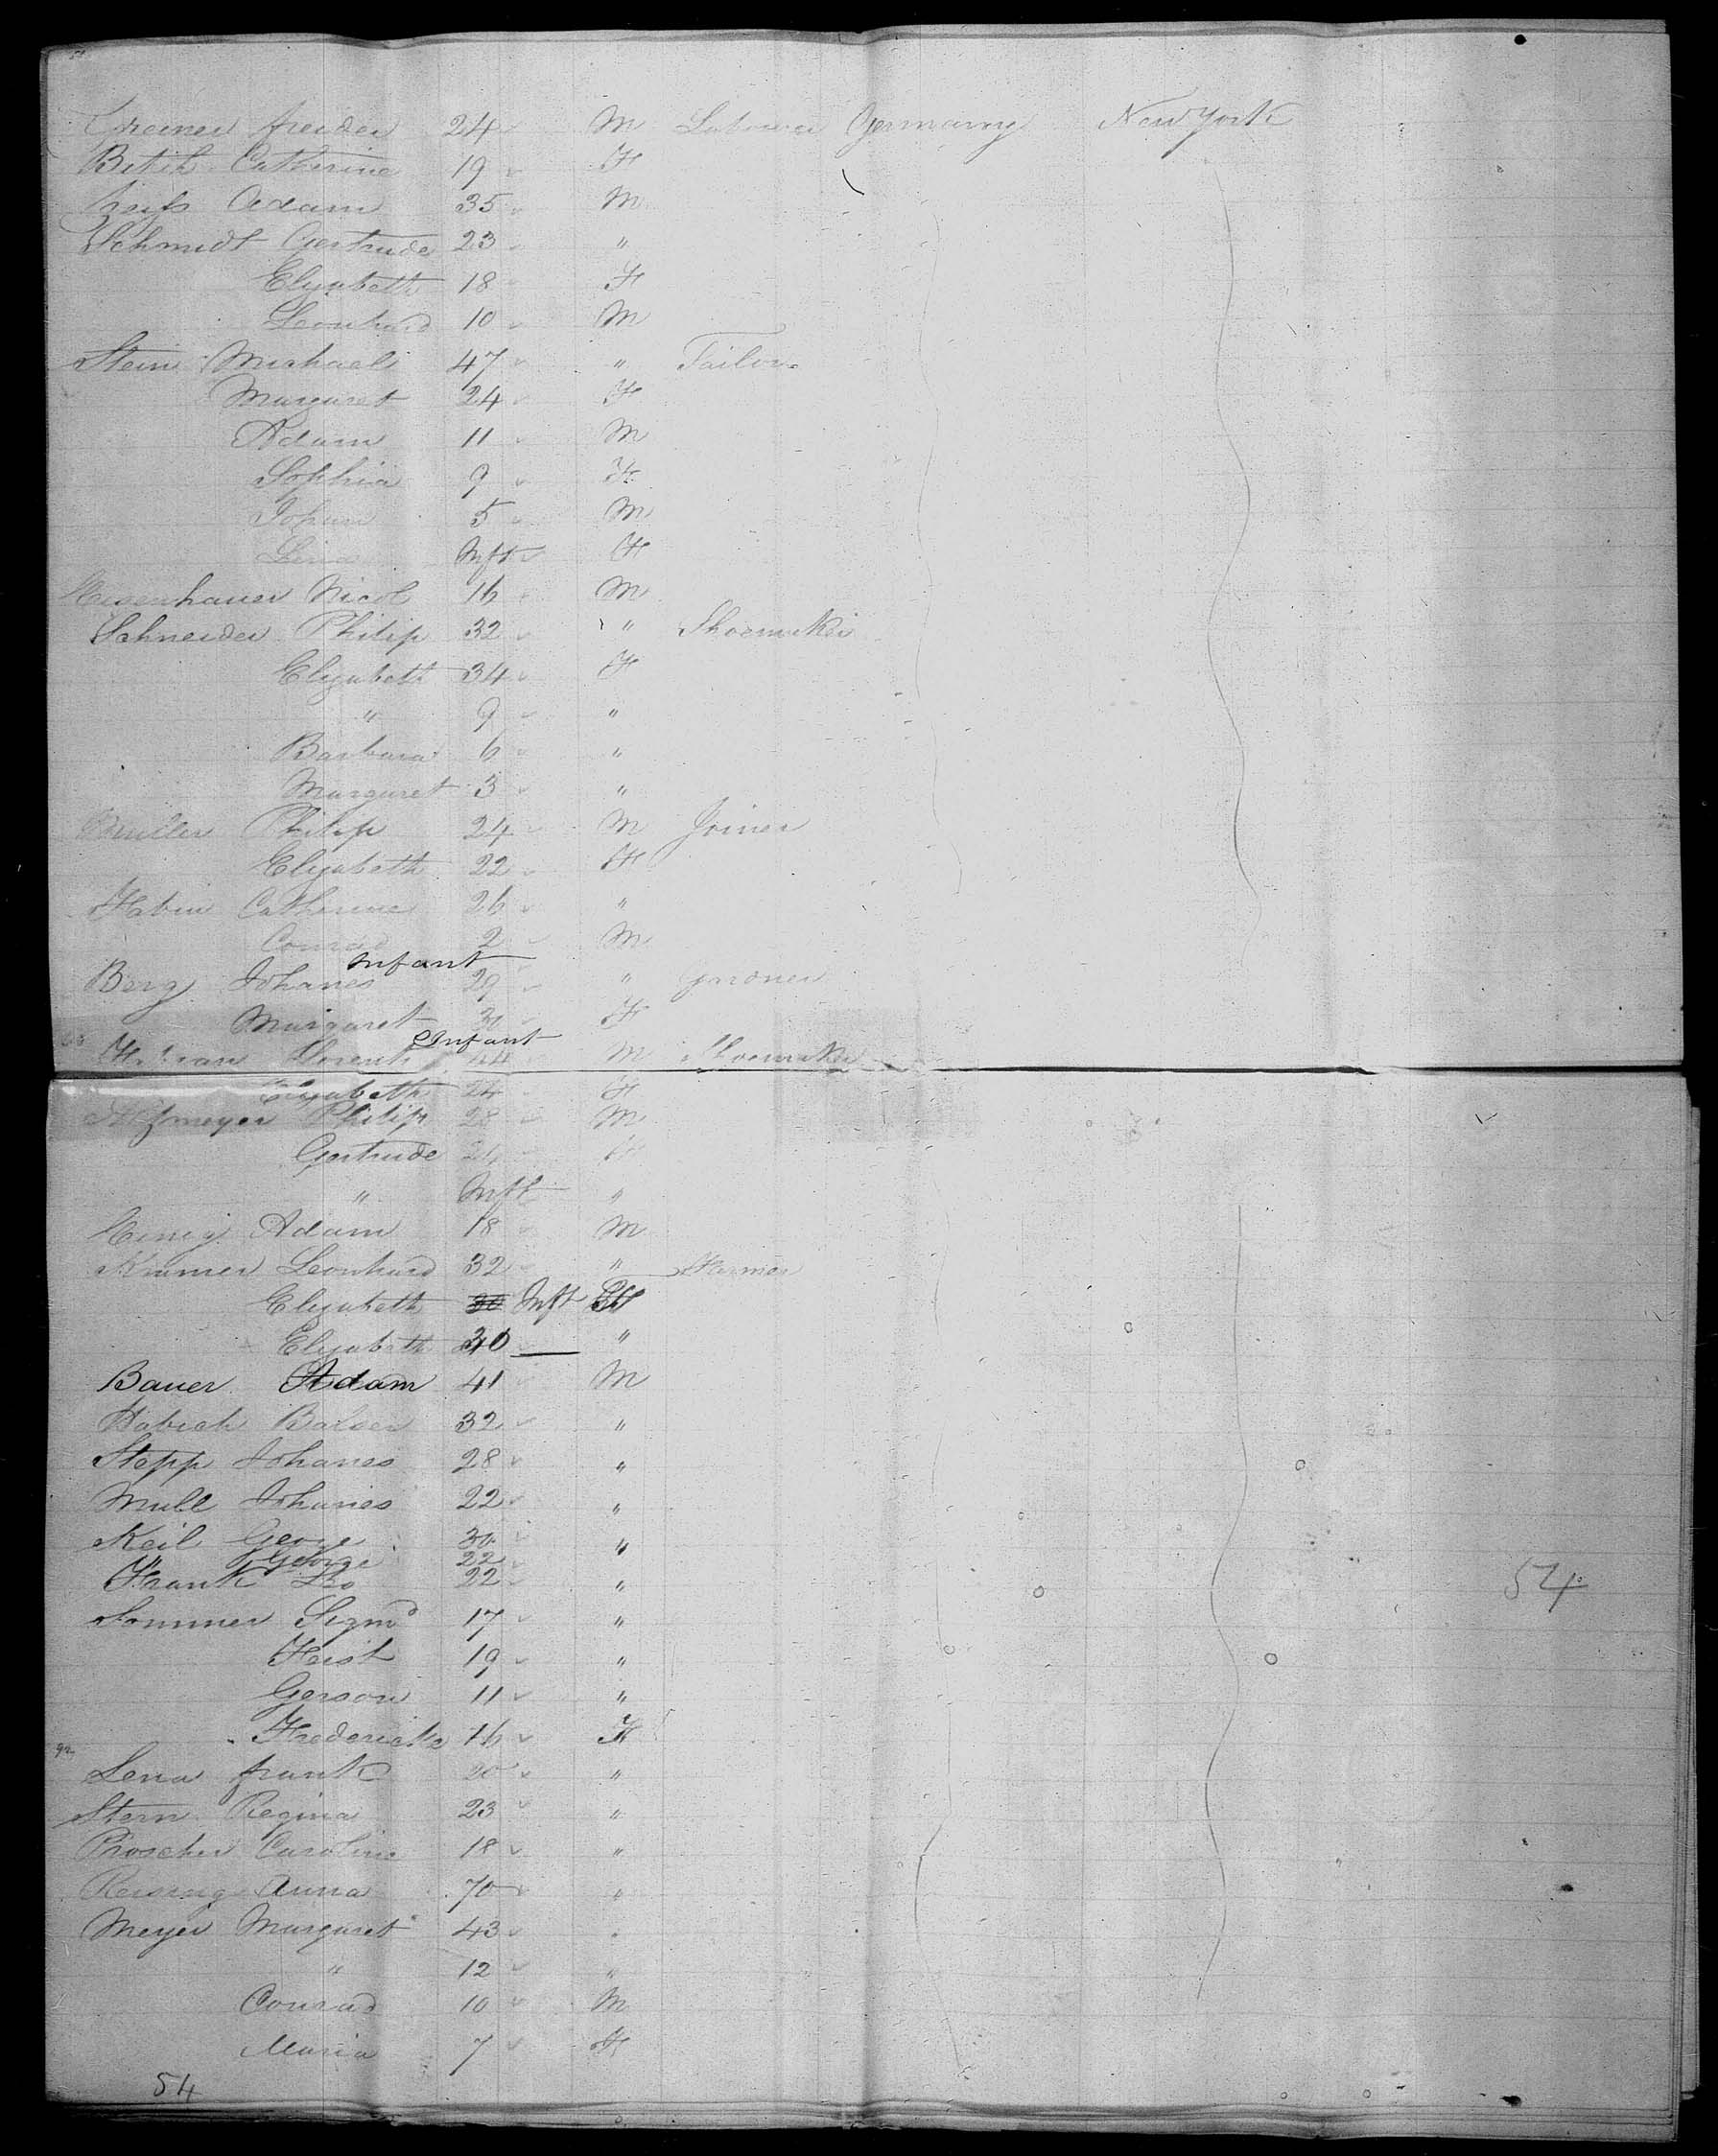 Greiner freider 24 M Laborer Germany New York
Betih Catherine 19 F
Adam 35 M
Schmidt Gertrude 23 "
Elyzabeth 18 F
Leonhard 10 M
Stein Michael 47 " Tailor
Margaret 24 F
Adam 11 M
Sophia 9 F
Johan 5 M
Lina Inft F
Meisenhauer Nicol 16 M
Schneider Philip 32 " Shoemaker
Elyzabeth 34 F
" 9 "
Barbara 6 "
Margaret 3 "
Muller Philip 24 M Joiner
Elyzabeth 22 F
Catherine 26 "
Conrad 2 M
Infant
Berg Johanes 29 "
Margaret F
Infant
M Shoemaker
Elyzabeth 24 F
Philip 28 M
Gertrude
" Inft "
Adam 18 M
Krämer Leonhard 32 " Farmer
Elyzabeth Inft F
Elyzabeth 30 "
Bauer Adam 41 M
Habich Balser 32 "
Stepp Johanes 28 "
Mull Johanes 22 "
Keil George 30 "
" George 22
Frank Leo 22 "
Sommer Sigmd 17 "
Feist 19 "
Gerson 11 "
Fredericke 16 F
Lena frank 20 "
Stern Regina 23 "
Caroline 18 "
Anna 70 "
Meyer Margaret 43 "
" 12 "
Conrad 10 M
Maria 7 F
54
54